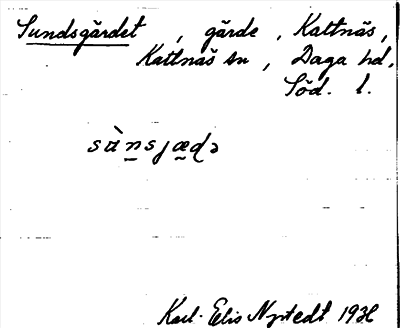 Sundsgärdet, gärde, Kattnäs,
Kattnäs sn, Daga hd,
Söd. l.
sùnsjædə
Karl-Elis Nystedt